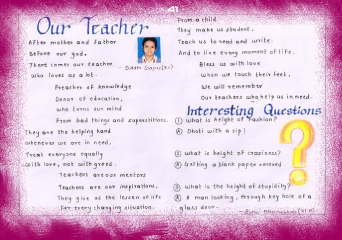 41
Our Teacher
After mother and father
Before our god.
There comes our teacher
who loves us a lot.
Preacher of knowledge
Donor of education,
who turns our mind
From bad things and superstitions.
They are the helping hand
whenever we are in need,
Treat everyone equally
With love, not with greed.
Teachers are our mentors
Teachers are our inspirations,
They give us the lesson of life
For every changing situation.
From a child
They make us student,
Teach us to read and write.
And to live every moment of life.
Bless us with love
when we touch their feet,
We will remember
Our teachers who help us in need.
Interesting Questions
Q What is height of Fashion?
A Dhoti with a zip!
Q What is height of craziness?
A Getting a blank paper xeroxed.
Q What is the height of stupidity?
A A man looking through key hole of a
glass door.